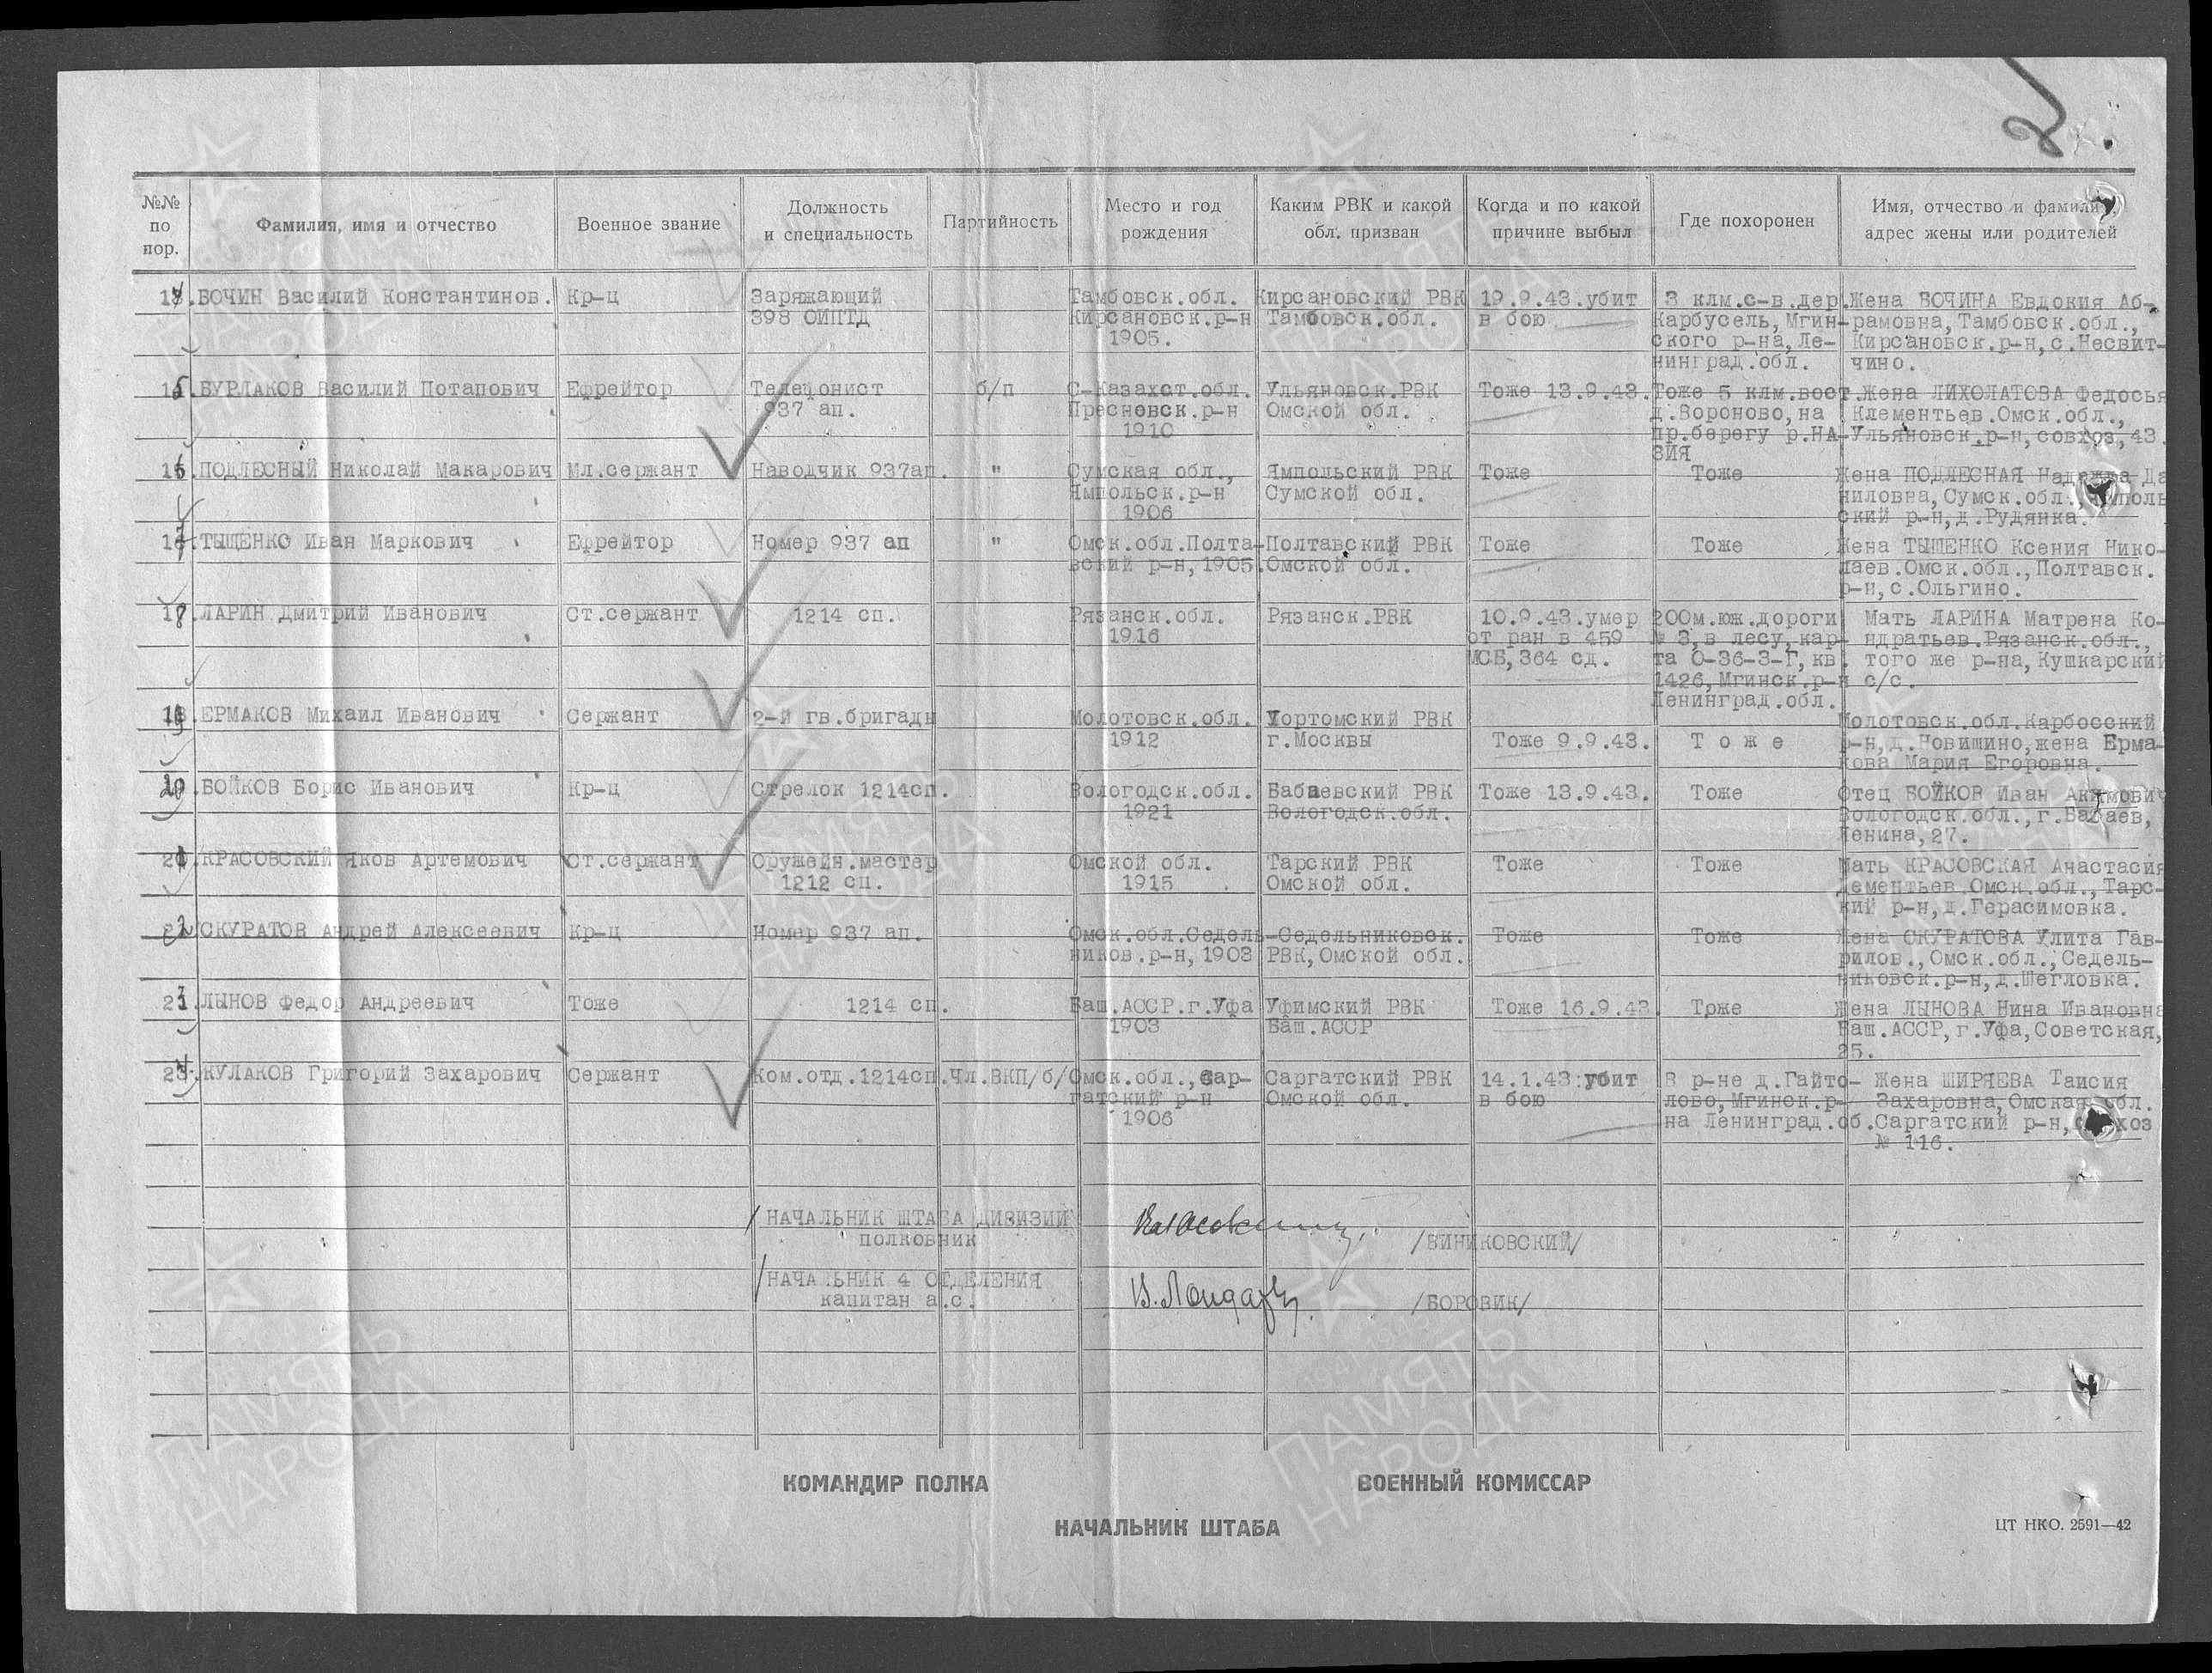 2
№№ по пор.
Фамилия, имя и отчество
Военное звание
Должность и специальность
Партийность
Место и год рождения
Каким РВК и какой обл. призван
Когда и по какой причине выбыл
Где похоронен
Имя, отчество и фамилия, адрес жены или родителей
БОЧИН Василий Константинов. Кр-ц Заряжающий Тамбовск.обл. Кирсановский РВК 19.9.43.убит 3 клм.с-в.дер. Жена БОЧИНА Евдокия Аб-
398 ОИПТД Кирсановск.р-н Тамбовск.обл. в бою Карбусель,Мгин- рамовна,Тамбовск.обл.,
1905. ского р-на,Ле- Кирсановск.р-н,с.Несвит-
нинград.обл. чино.
БУРЛАКОВ Василий Потапович Ефрейтор Телефонист б/п С-Казахст.обл. Ульяновск.РВК Тоже 13.9.43. Тоже 5 клм.вост. Жена ЛИХОЛАТОВА Федосья
937 ап. Пресновск.р-н Омской обл. д.Вороново,на Клементьев.Омск.обл.,
1910 пр.берегу р.НА- Ульяновск.р-н,совхоз,43.
ЗИЯ
ПОДЛЕСНЫЙ Николай Макарович Мл.сержант Наводчик 937ап. " Сумская обл., Ямпольский РВК Тоже Тоже Жена ПОДЛЕСНАЯ Надежда Да
Ямпольск.р-н Сумской обл. ниловна,Сумск.обл.,
1906 ский р-н,д.Рудянка.
ТЫЩЕНКО Иван Маркович Ефрейтор Номер 937 ап " Омск.обл.Полта- Полтавский РВК Тоже Тоже Жена ТЫЩЕНКО Ксения Нико-
вский р-н,1905. Омской обл. лаев.Омск.обл.,Полтавск.
р-н,с.Ольгино.
ЛАРИН Дмитрий Иванович Ст.сержант 1214 сп. Рязанск.обл. Рязанск.РВК 10.9.43.умер 200м.юж.дороги Мать ЛАРИНА Матрена Ко-
1916 от ран в 459 № 3,в лесу,кар- ндратьев.Рязанск.обл.,
МСБ,364 сд. та О-36-3-Г,кв. того же р-на,Кушкарский
1426,Мгинск.р-н с/с.
Ленинград.обл.
ЕРМАКОВ Михаил Иванович Сержант 2-й гв.бригады Молотовск.обл. РВК Молотовск.обл.Карбосский
1912 г.Москвы Тоже 9.9.43. Т о ж е р-н,д.Новишино,жена Ерма-
кова Мария Егоровна.
БОЙКОВ Борис Иванович Кр-ц Стрелок 1214сп. Вологодск.обл. Бабаевский РВК Тоже 13.9.43. Тоже Отец БОЙКОВ Иван Акимович
1921 Вологодск.обл. Вологодск.обл.,г.Бабаев,
Ленина,27.
КРАСОВСКИЙ Яков Артемович Ст.сержант Оружейн.мастер Омской обл. Тарский РВК Тоже Тоже Мать КРАСОВСКАЯ Анастасия
1212 сп. 1915 Омской обл. Дементьев.Омск.обл.,Тарс-
кий р-н,д.Герасимовка.
СКУРАТОВ Андрей Алексеевич Кр-ц Номер 937 ап. Омск.обл.Седель- Седельниковск. Тоже Тоже Жена СКУРАТОВА Улита Гав-
ников.р-н,1903 РВК,Омской обл. рилов.,Омск.обл.,Седель-
никовск.р-н,д.Шегловка.
ЛЫНОВ Федор Андреевич Тоже 1214 сп. Баш.АССР.г.Уфа Уфимский РВК Тоже 16.9.43. Тоже Жена ЛЫНОВА Нина Ивановна
1903 Баш.АССР Баш.АССР,г.Уфа,Советская,
25.
КУЛАКОВ Григорий Захарович Сержант Ком.отд.1214сп. Чл.ВКП/б/ Омск.обл.,Сар- Саргатский РВК 14.1.43:убит В р-не д.Гайто- Жена ШИРЯЕВА Таисия
гатский р-н Омской обл. в бою лово,Мгинск.р- Захаровна,Омская обл.
1906 на Ленинград.об. Саргатский р-н,
№ 116.
/НАЧАЛЬНИК ШТАБА ДИВИЗИИ
полковник /ВИНИКОВСКИЙ/
/НАЧАЛЬНИК 4 ОТДЕЛЕНИЯ
капитан а.с. /БОРОВИК/
КОМАНДИР ПОЛКА
ВОЕННЫЙ КОМИССАР
НАЧАЛЬНИК ШТАБА
ЦТ НКО. 2591—42
ПАМЯТЬ
НАРОДА